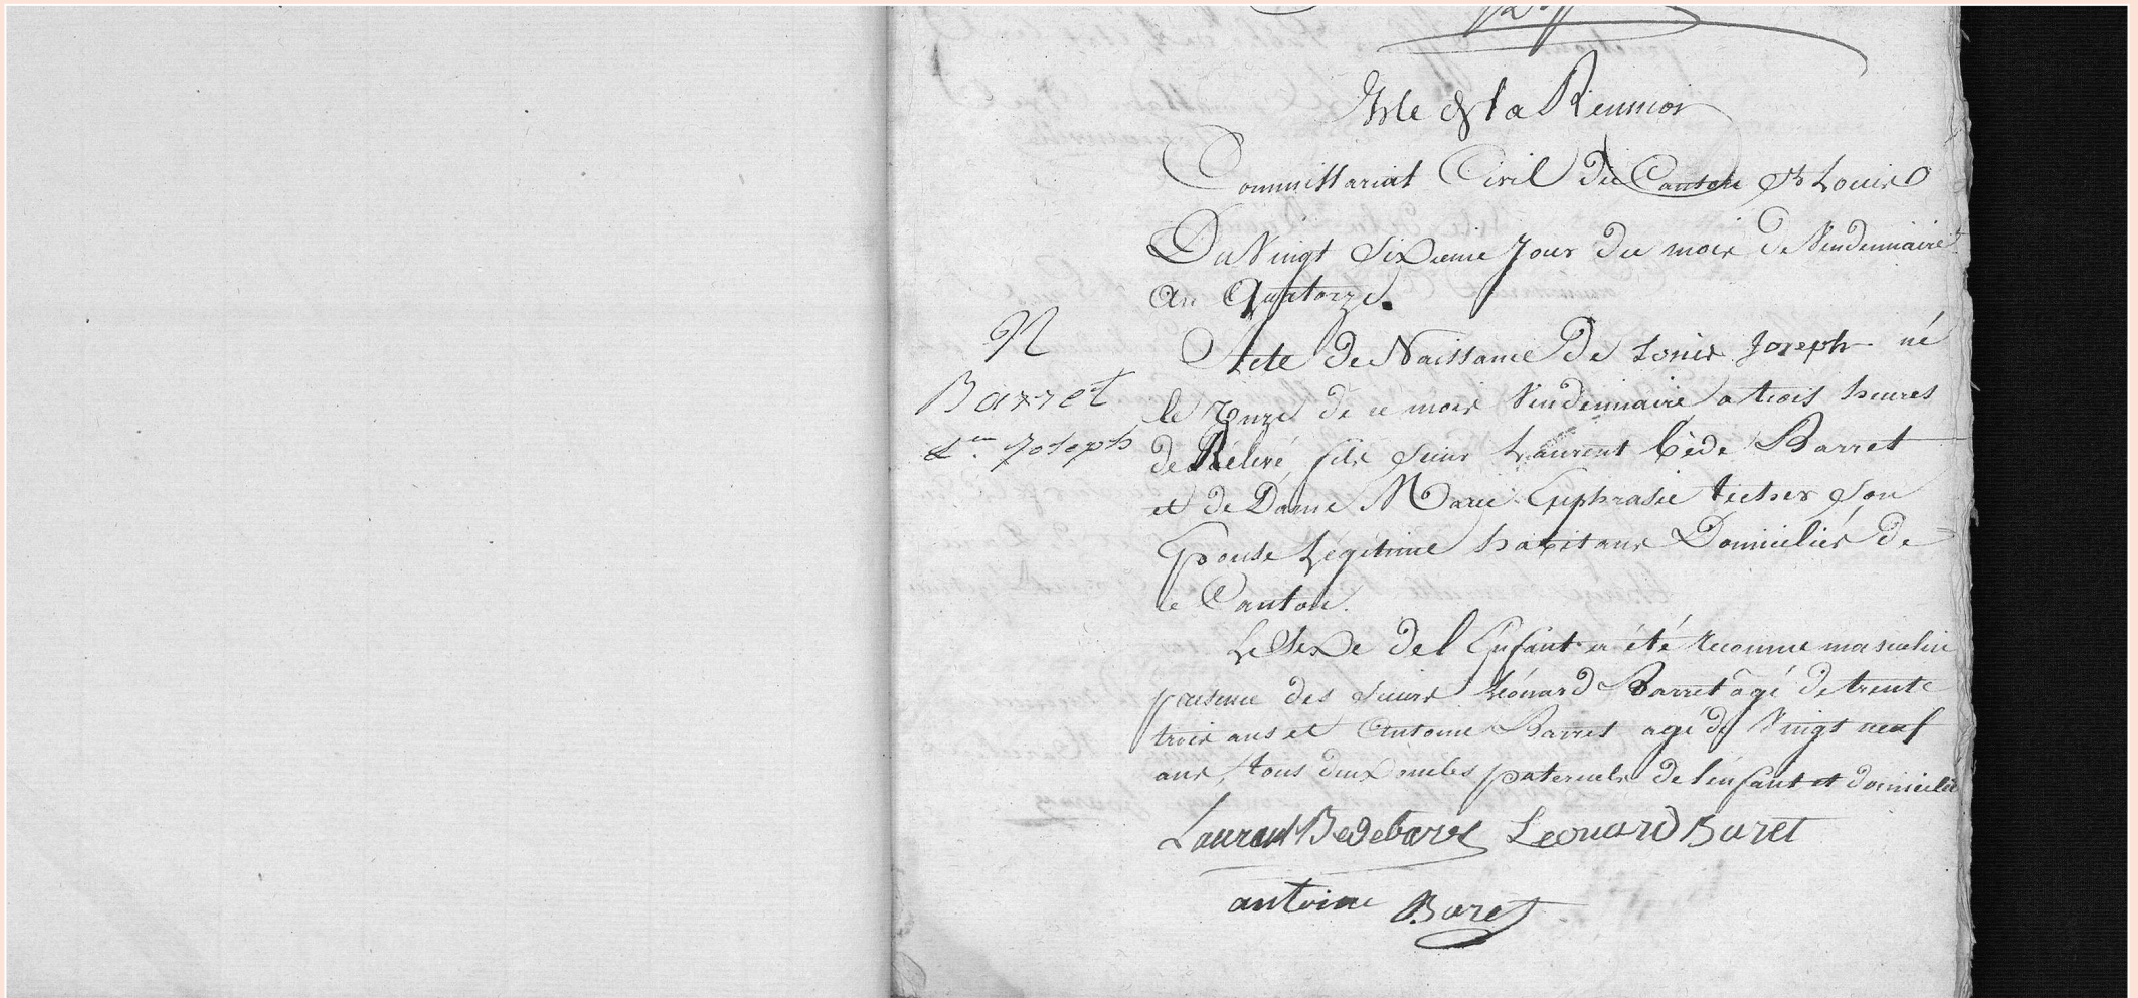 Isle de la Reunion
Commissariat Civil du Canton St Louis
Du Vingt Sixieme Jour du mois de Vendemiaire
An Quatorze.
N
Barret
Ls. Joseph
Acte de Naissance de Louis Joseph né
le Onze de ce mois Vendemiaire a trois heures
de Rélevé, fils Sieur Laurent Bède Barret
et de Dame Marie Euphrasie techer Son
Epouse Légitime habitans Domiciliés de
ce Canton.
Le Sexe de l'Enfant a été reconnu masculin
presence des Sieurs Léonard Barret âgé de trente
trois ans et Antoine Barret agé de Vingt neuf
ans, tous deux oncles paternels de l'enfant et domiciliés
Laurent Bedebaret Leonard Baret
antoine Baret